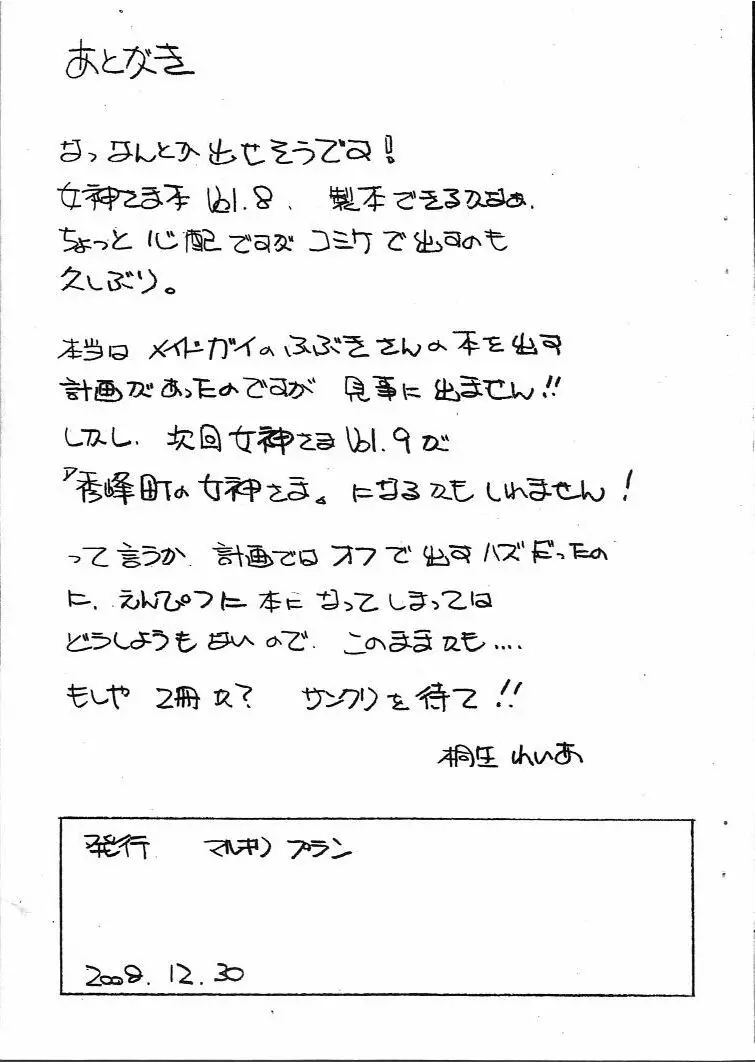 あとがき
なっなんとか出せそうです!
女神さま本 Vol.8、製本できるかなぁ、
ちょっと心配ですが コミケで出すのも
久しぶり。
本当は メイドガイのふぶきさんの本を出す
計画があったのですが 見事に出ません!!
しかし、次回女神さま Vol.9が
『秀峰町の女神さま』になるかもしれません!
って言うか 計画ではオフで出すハズだったの
に、えんぴつ本になってしまっては
どうしようもないので、このままかも....
もしや 2冊か? サンクリを待て!!
桐生 れいあ
発行 マルキリプラン
2008.12.30